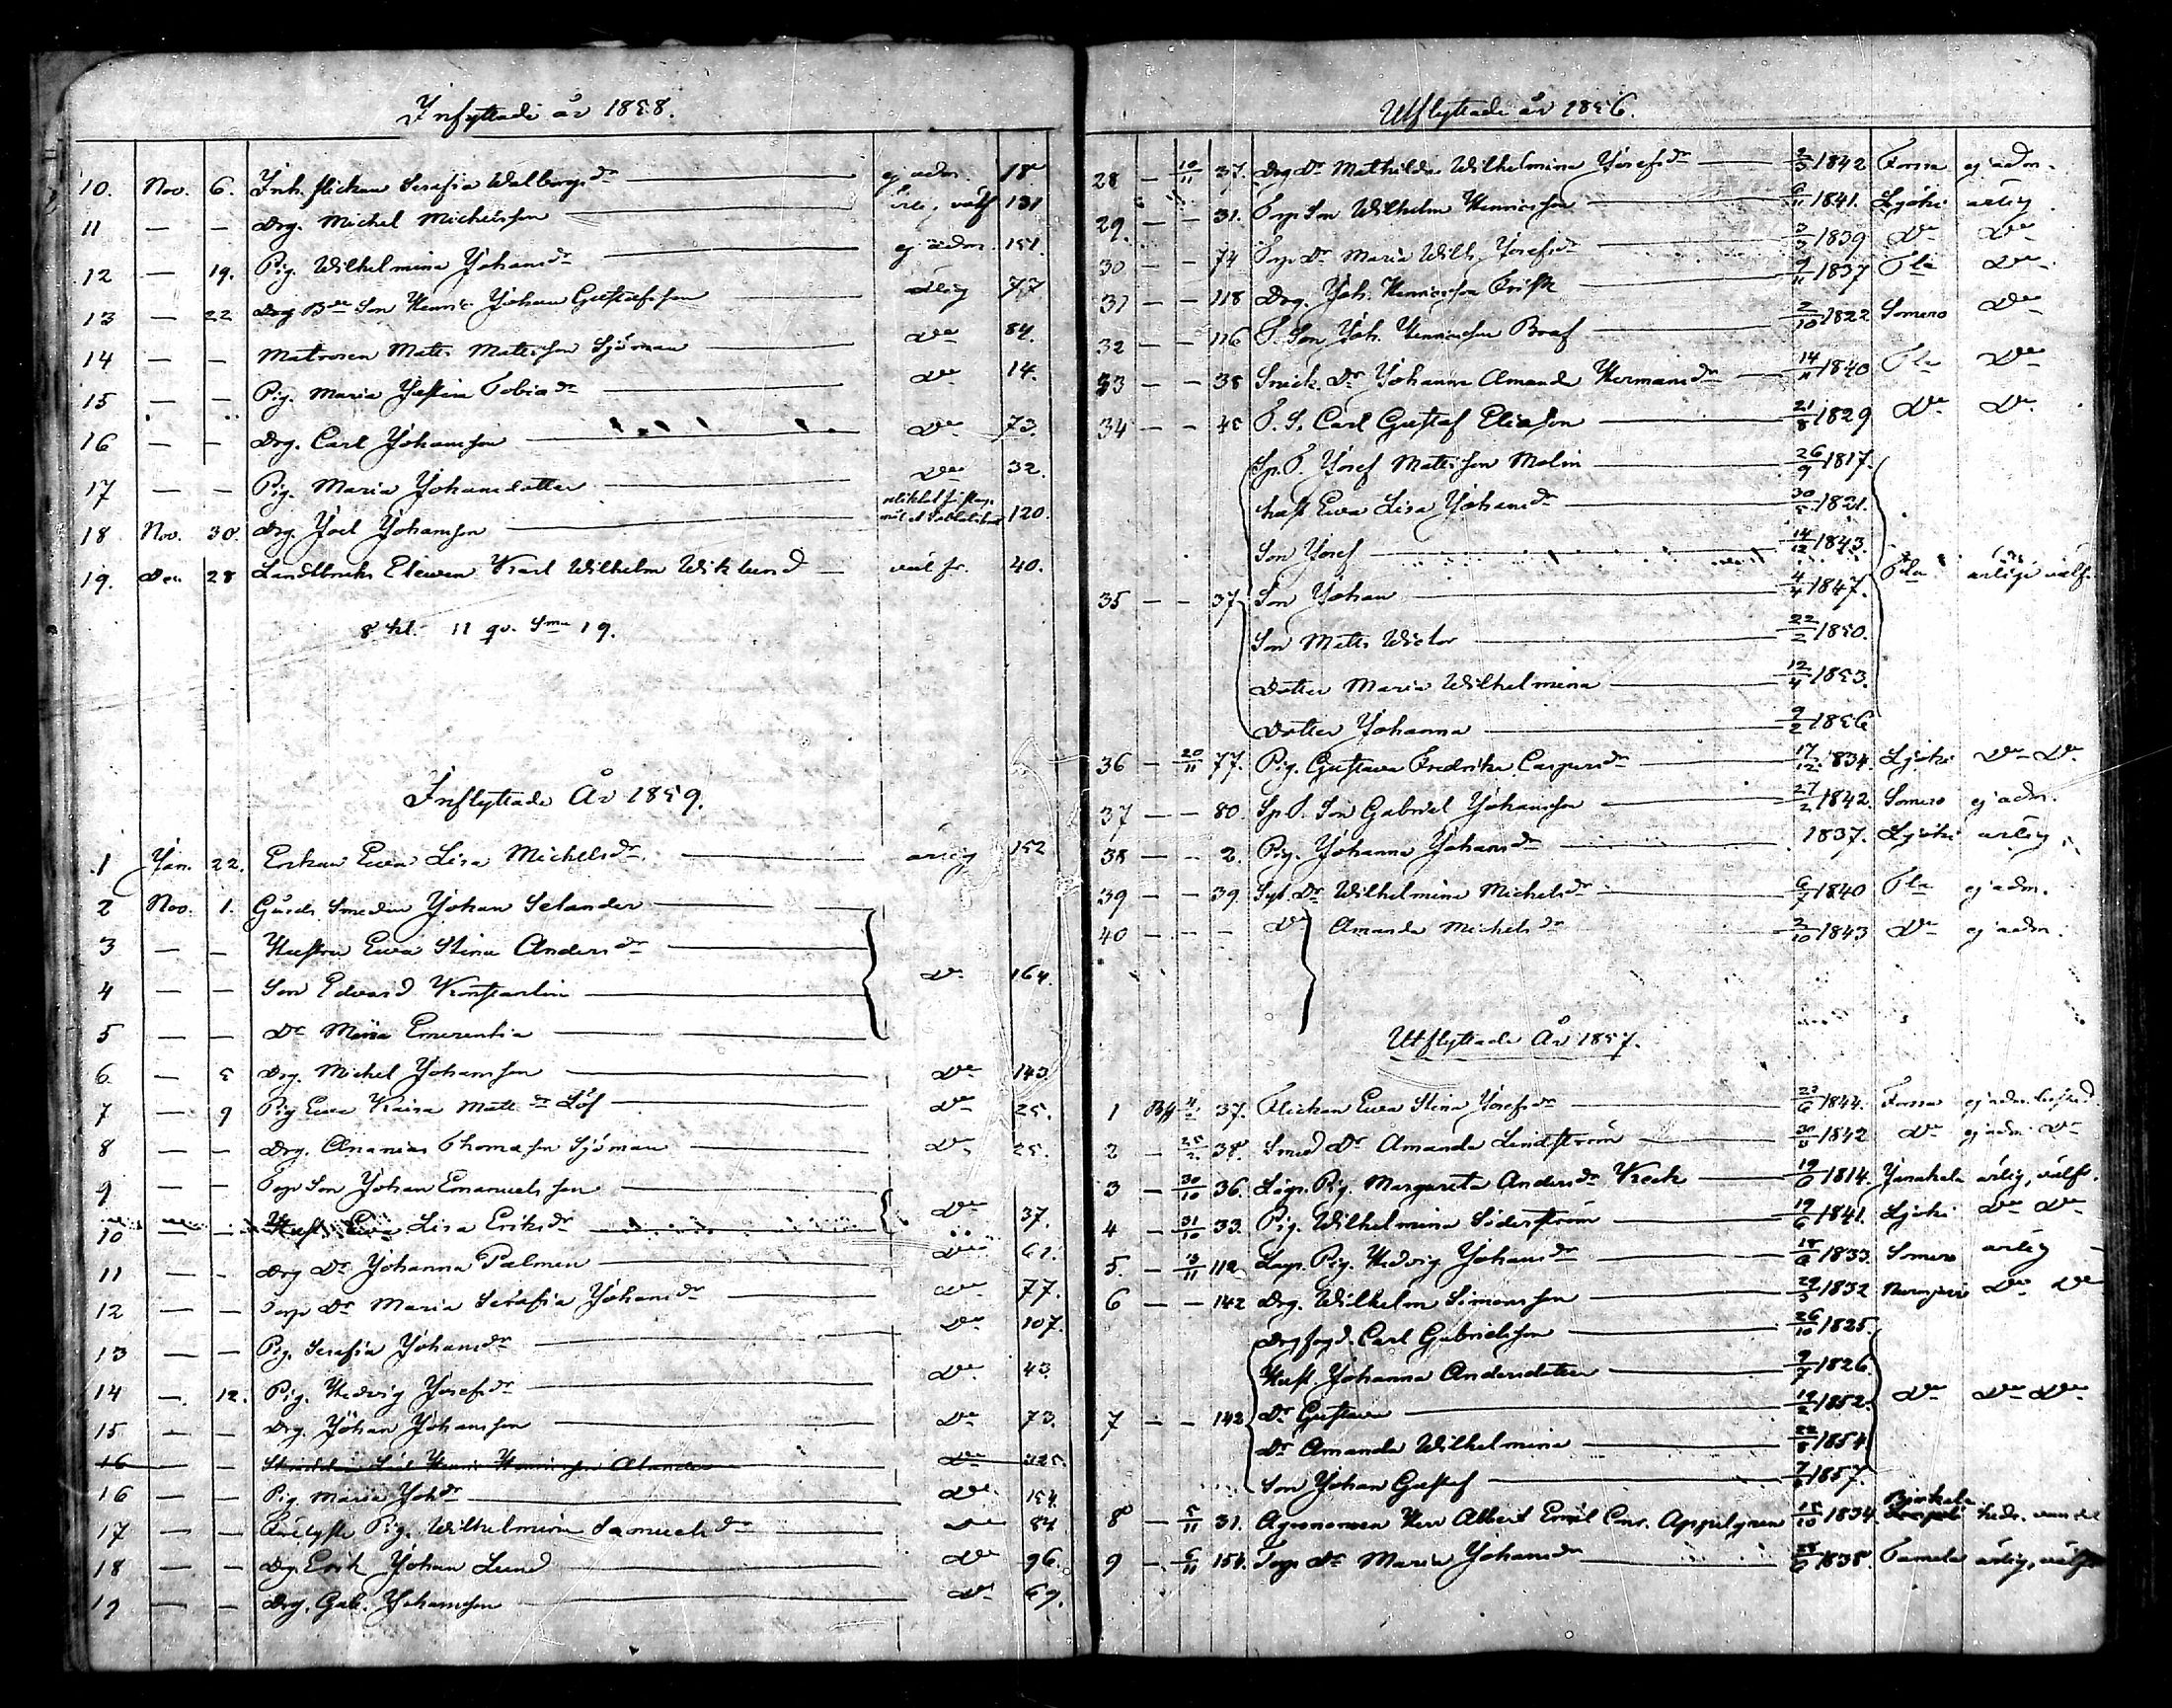 Inflyttade år 1858.
10. Nov. 6. Inh. flickan Serafia Walborgsdr ej adm. 18
11 — — Drg. Michel Michelsson 131
12 — 19. Pig. Wilhelmina Johansdr ej adm. 151.
13 — 22 Son Henric Johan Gustafsson ärlig 77
14 — — Matrosen Matts Mattsson Sjöman Do 84.
15 — — Pig. Maria Justina Tobiadr Do 14.
16 — — Drg. Carl Johansson Do 73.
17 — — Pig. Maria Johansdotter Do 32.
18 Nov. 30. Drg. Joel Johansson 120.
19. Dec 28 Landtbruks Eleven Karl Wilhelm Wiklund välfr. 40.
8 kl. 11 qv. Sma 19.
Inflyttade År 1859.
1 Jan. 22. Enkan Ewa Lisa Michelsdr ärlig 152
2 Nov. 1. Gårds Smeden Johan Selander
3 — — Hustru Ewa Stina Andersdr
4 — — Son Edvard Konstantin Do 164.
5 — — Dr Maria Emerentia
6 — 5 Drg. Michel Johansson Do 143.
7 — 9 Pig Ewa Kaisa Mattsdr Löf Do 25.
8 — — Drg. Ananias Thomasson Sjöman Do 25.
9 — — Torp Son Johan Emanuelsson
10 — — Hust. Ewa Lisa Eriksdr Do 37.
11 — — Drg Dr Johanna Palmen Do 61.
12 — — Torp Dr Maria Serafia Johansdr Do 77.
13 — — Pig. Serafia Johansdr Do 107.
14 — 12. Pig. Hedvig Josefsdr Do 43
15 — — Drg. Johan Johansson Do 73.
16 — — Henric Henricsson Alander Do 125.
16 — — Pig. Maria Johdr Do 154.
17 — — Pig. Wilhelmina Samuelsdr Do 84
18 — — Drg. Erik Johan Lund Do 96.
19 — — Drg. Gab. Johansson Do 69.
Utflyttade år 1856.
28 — 10/11 37. Drg Dr Mathilda Wilhelmina Josefsdr 2/3 1842 Forssa ej adm.
29. — — 31. Torp Son Wilhelm Henricsson 6/11 1841. Urjala ärlig
30 — — 74 Torp Dr Maria Wilh. Josefsdr 3/3 1839 Do Do
31 — — 118 Drg. Joh. Henricsson Frisk 9/11 1837 Do
32 — — 116 T. Son Joh. Henricsson Braf 2/10 1822 Somero Do
33 — — 38 Snick. Dr Johanna Amanda Hermansdr 14/11 1840 Do
34 — — 45 T. S. Carl Gustaf Eliasson 21/8 1829 Do Do
Sp. T. Josef Mattsson Malin 26/9 1817.
hust Ewa Lisa Johansdr 30/5 1821.
Son Josef 14/12 1843.
35 — — 37 Son Johan 4/4 1847.
Son Matts Wictor 22/2 1850.
Dotter Maria Wilhelmina 12/4 1853.
Dotter Johanna 9/2 1856
36 — 20/11 77. Pig. Gustava Fredrika Caspersdr 17/12 1834. Do Do
37 — — 80. Sp. T. Son Gabriel Johansson 27/2 1842. Somero ej adm.
38 — — 2. Pig. Johanna Johansdr 1837. ärlig
39 — — 39. Syt. Dr Wilhelmina Michelsdr 6/7 1840 ej adm.
40 — — — Do Amanda Michelsdr 2/10 1843 Do ej adm.
Utflyttade År 1857.
1 37. Flickan Ewa Stina Josefsdr 23/6 1844. Forssa ej adm.
2 — 25/2 38. Smed Dr Amanda Lindström 30/5 1842 Do ej adm. Do
3 — 30/10 36. Pig. Margareta Andersdr Keck 19/6 1814. Janakala ärlig, välfr.
4 — 31/10 33. Pig. Wilhelmina Söderström 19/6 1841. Do Do
5. — 3/11 112 Pig. Hedvig Johansdr 18/6 1833. Somero ärlig —
6 — — 142 Drg. Wilhelm Simonsson 29/5 1832 Nurmijärvi Do Do
Drgfogd. Carl Gabrielsson 26/10 1825.
Hust. Johanna Andersdotter 9/7 1826
7 — — 142 Dr Gustava 12/2 1852. Do Do Do
Dr Amanda Wilhelmina 22/8 1854
Son Johan Gustaf 1857.
8 — 5/11 31. Agronomen Herr Albert Emil Conr. Appelgren 15/10 1834 Birkala
9 — 6/11 154. Torp Dr Maria Johansdr 1838. ärlig,